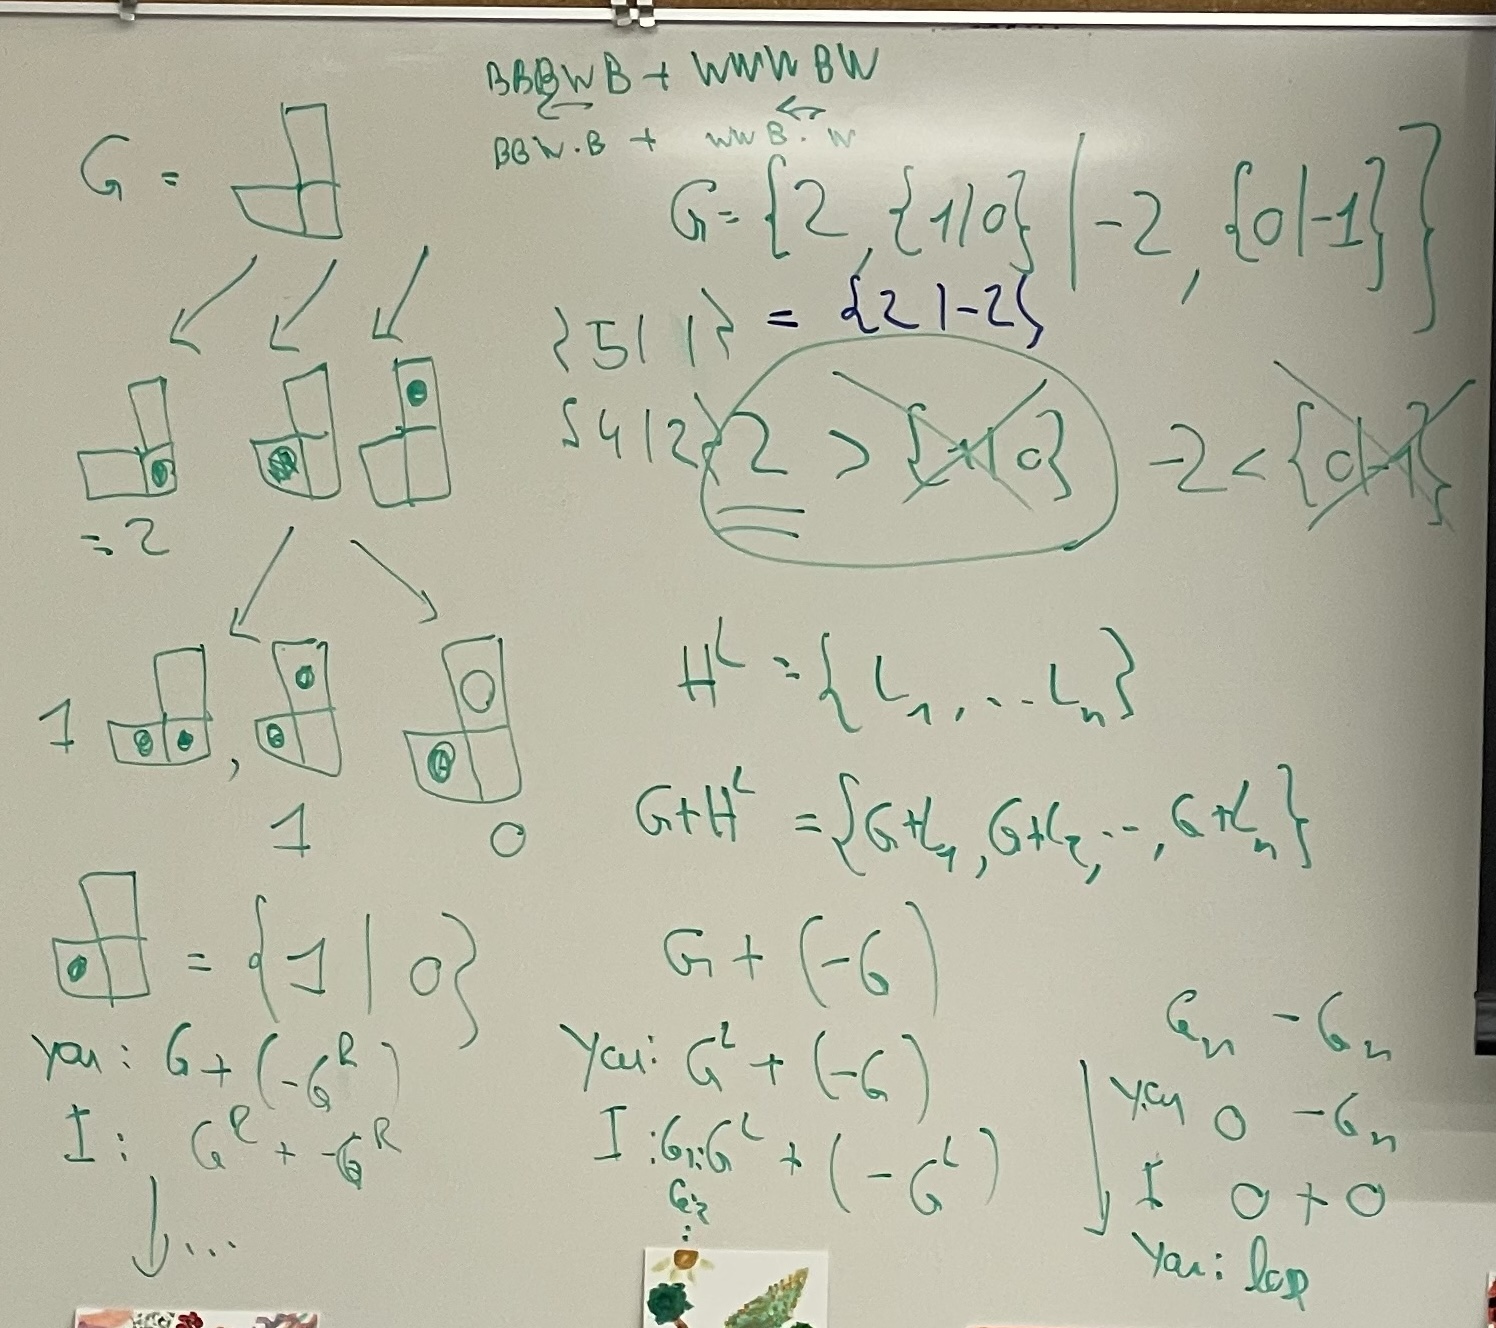 BBBWB + WWWBW
BBW.B + WWB.W
G =
G = {2, {1|0} | -2, {0|-1}}
{5|1} = {2|-2}
{4|2} 2 > {1|0} -2 < {0|-1}
= 2
1 , 1 0
H^L = {L_1, ... L_n}
G+H^L = {G+L_1, G+L_2, ..., G+L_n}
= {1|0}
G + (-G)
you: G + (-G^R)
I: G^R + -G^R
...
you: G^L + (-G)
I: G_1: G^L + (-G^L)
G_2
:
G_n - G_n
you 0 -G_n
I 0 + 0
you: lose